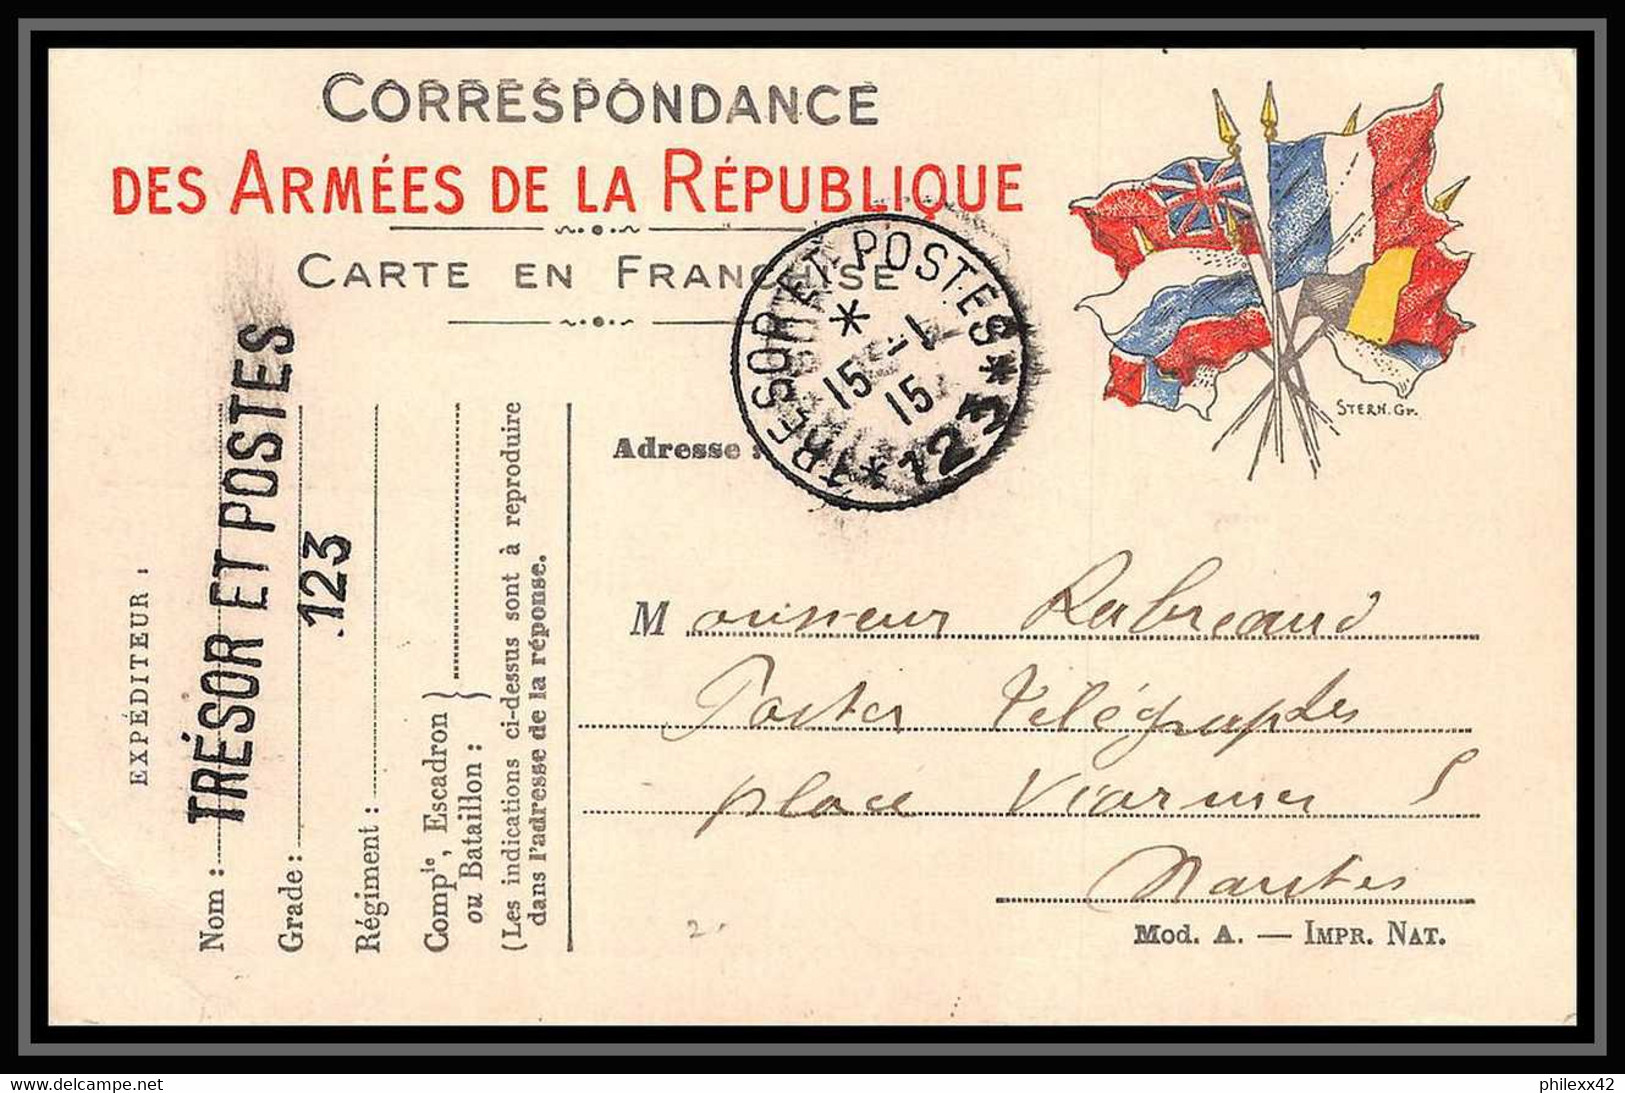 CORRESPONDANCE
DES ARMÉES DE LA RÉPUBLIQUE
CARTE EN FRANCHISE
TRESOR ET POSTES * 123 *
*
15 -1
15
STERN. Gr.
EXPÉDITEUR :
Nom :
TRÉSOR ET POSTES
Grade :
123
Régiment :
Compie, Escadron
ou Bataillon :
(Les indications ci-dessus sont à reproduire
dans l'adresse de la réponse.
Adresse :
Monsieur Rabreaud
Postes Télégraphes
place Viarmes
Nantes
2.
MOD. A. — IMPR. NAT.
delcampe.net
philexx42